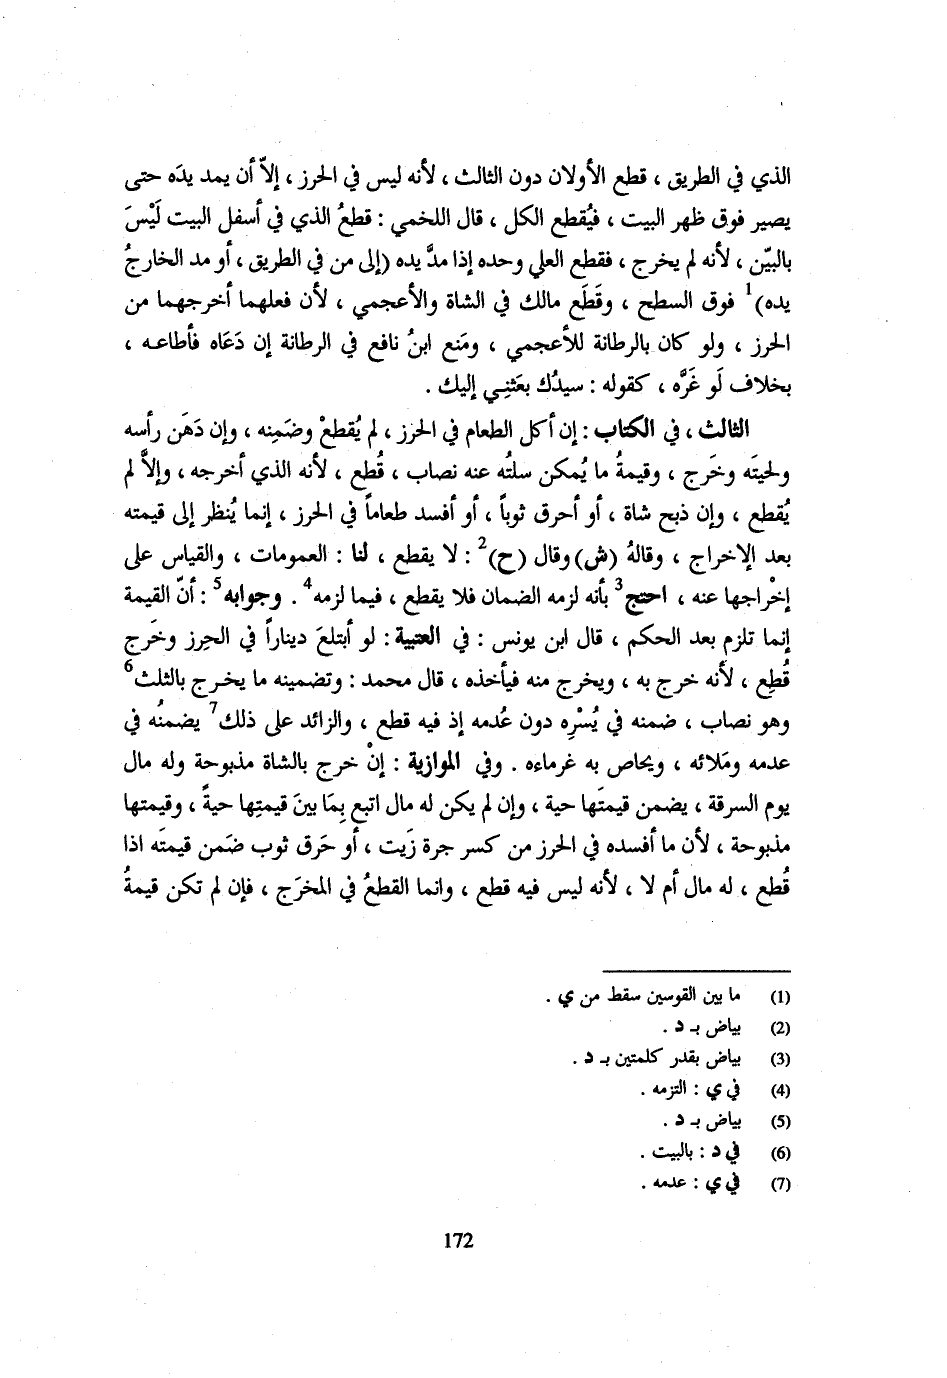 الذي في الطريق ، قطع الأولان دون الثالث ، لأنه ليس في الحرز ، إلاّ أن يمد يدَه حتى
يصير فوق ظهر البيت ، فيُقطع الكل ، قال اللخمي : قطعُ الذي في أسفل البيت لَيْسَ
بالبيّن ، لأنه لم يخرج ، فقطع العلي وحده إذا مدَّ يده (إلى من في الطريق ، أو مد الخارجُ
يده)1 فوق السطح ، وقَطَع مالك في الشاة والأعجمي ، لأن فعلهما أخرجهما من
الحرز ، ولو كان بالرطانة للأعجمي ، ومَنع ابنُ نافع في الرطانة إن دَعَاه فأطاعه ،
بخلاف لَو غَرَّه ، كقوله : سيدُك بعَثنِي إليك .
الثالث ، في الكتاب : إن أكل الطعام في الحرز ، لم يُقطعْ وضَمِنه ، وإن دَهَن رأسه
ولحيتَه وخَرج ، وقيمةُ ما يُمكن سلتُه عنه نصاب ، قُطع ، لأنه الذي أخرجه ، وإلاَّ لم
يُقطع ، وإن ذبح شاة ، أو أحرق ثوباً ، أو أفسد طعاماً في الحرز ، إنما يُنظر إلى قيمته
بعد الإخراج ، وقالهُ (ش) وقال (ح)2 : لا يقطع ، لنا : العمومات ، والقياس على
إخْراجها عنه ، احتج3 بأنه لزمه الضمان فلا يقطع ، فيما لزمه4 . وجوابه5 : أنّ القيمة
إنما تلزم بعد الحكم ، قال ابن يونس : في العتبية : لو أبتلعَ ديناراً في الحِرز وخَرج
قُطِع ، لأنه خرج به ، ويخرج منه فيأخذه ، قال محمد : وتضمينه ما يخرج بالثلث6
وهو نصاب ، ضمنه في يُسْرِه دون عُدمه إذ فيه قطع ، والزائد على ذلك7 يضمنُه في
عدمه ومَلائه ، ويحاص به غرماءه . وفي الموازية : إنْ خرج بالشاة مذبوحة وله مال
يوم السرقة ، يضمن قيمتَها حية ، وإن لم يكن له مال اتبع بِمَا بينَ قيمتِها حيةً ، وقيمتها
مذبوحة ، لأن ما أفسده في الحرز من كسر جرة زَيت ، أو حَرق ثوب ضَمن قيمتَه اذا
قُطع ، له مال أم لا ، لأنه ليس فيه قطع ، وانما القطعُ في المخرَج ، فإن لم تكن قيمةُ
(1) ما بين القوسين سقط من ي .
(2) بياض بـ د .
(3) بياض بقدر كلمتين بـ د .
(4) في ي : التزمه .
(5) بياض بـ د .
(6) في د : بالبيت .
(7) في ي : عدمه .
172